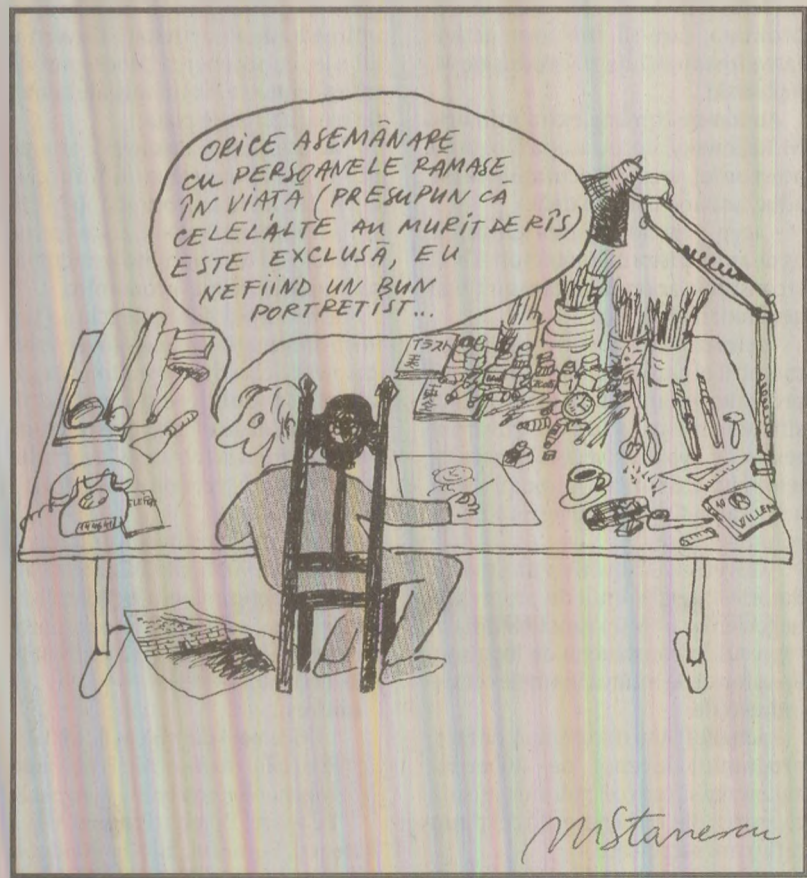 ORICE ASEMĂNARE
CU PERSOANELE RĂMASE
ÎN VIAȚĂ (PRESUPUN CĂ
CELELALTE AU MURIT DE RÎS)
ESTE EXCLUSĂ, EU
NEFIIND UN BUN
PORTRETIST...
WILLEM
MStanescu